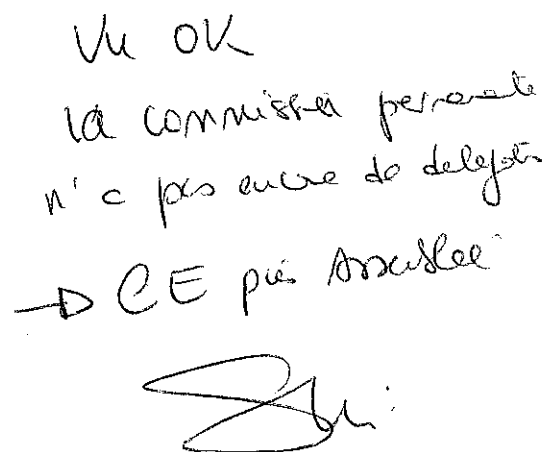 Vu OK
la commission permanente
n'a pas encore de délégation
→ CE puis Assemblée